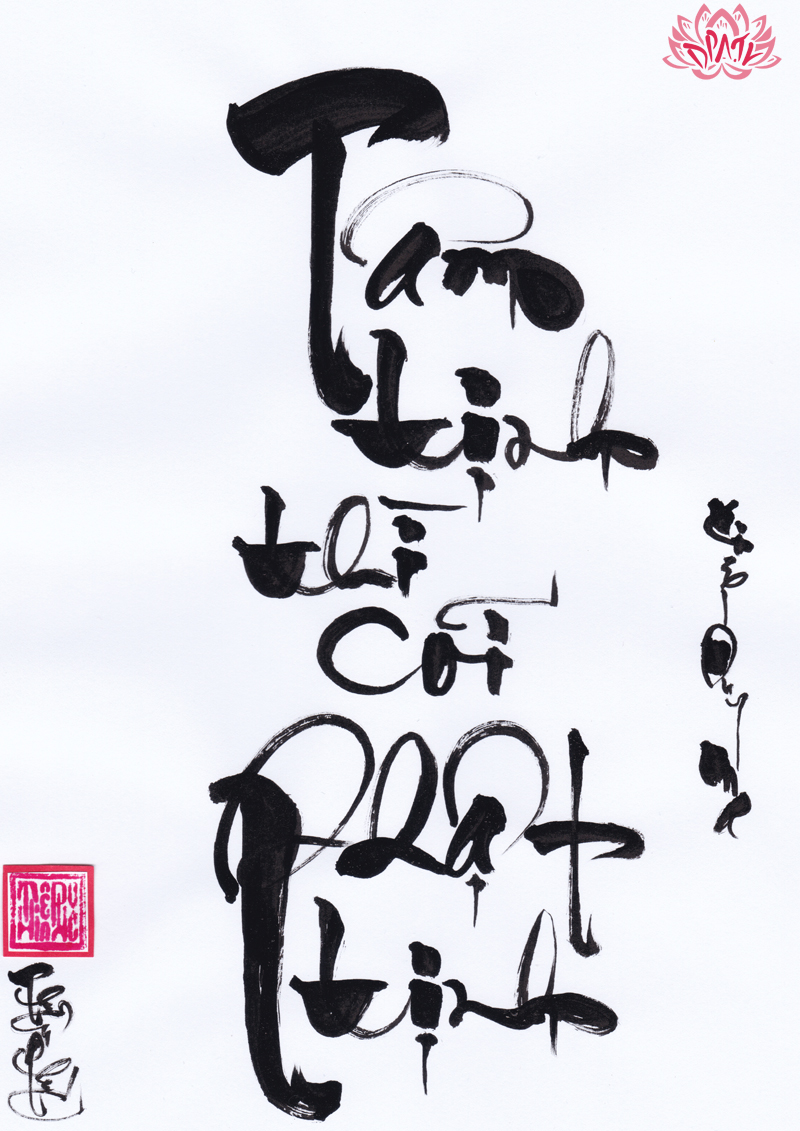 Tâm
tịnh
thì
cõi
Phật
tịnh
Duy
Ma